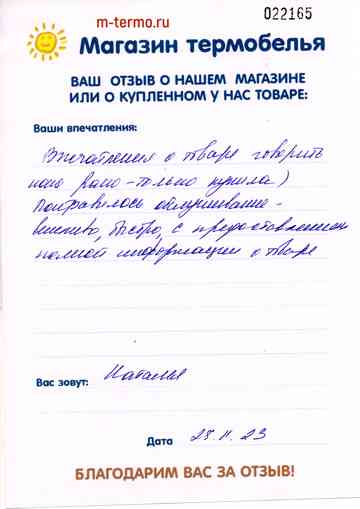 m-termo.ru
022165
Магазин термобелья
ВАШ ОТЗЫВ О НАШЕМ МАГАЗИНЕ
ИЛИ О КУПЛЕННОМ У НАС ТОВАРЕ:
Ваши впечатления:
Впечатления о товаре говорить
пока рано - только купила)
Понравилось обслуживание -
вежливо, быстро, с предоставлением
полной информации о товаре
Вас зовут: Наталья
Дата 28.11.23
БЛАГОДАРИМ ВАС ЗА ОТЗЫВ!